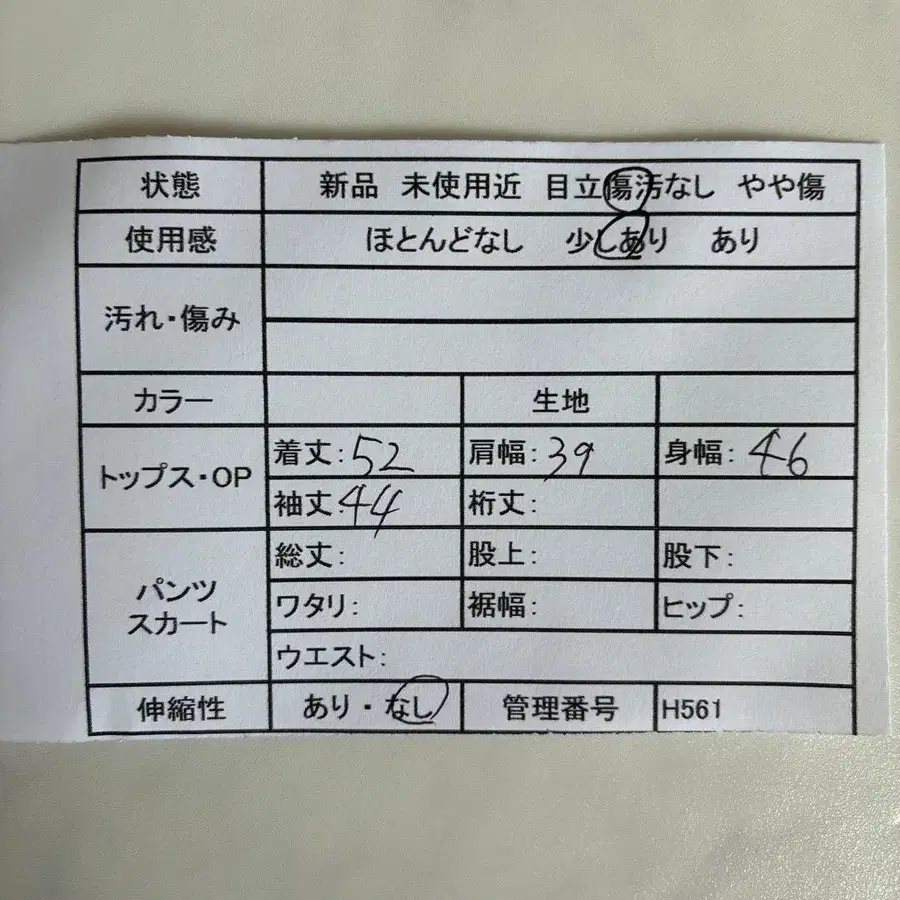 状態 新品 未使用近 目立傷汚なし やや傷
使用感 ほとんどなし 少しあり あり
汚れ・傷み
カラー 生地
トップス・OP
着丈:52 肩幅:39 身幅:46
袖丈:44 裄丈:
パンツ
スカート
総丈: 股上: 股下:
ワタリ: 裾幅: ヒップ:
ウエスト:
伸縮性 あり・なし 管理番号 H561